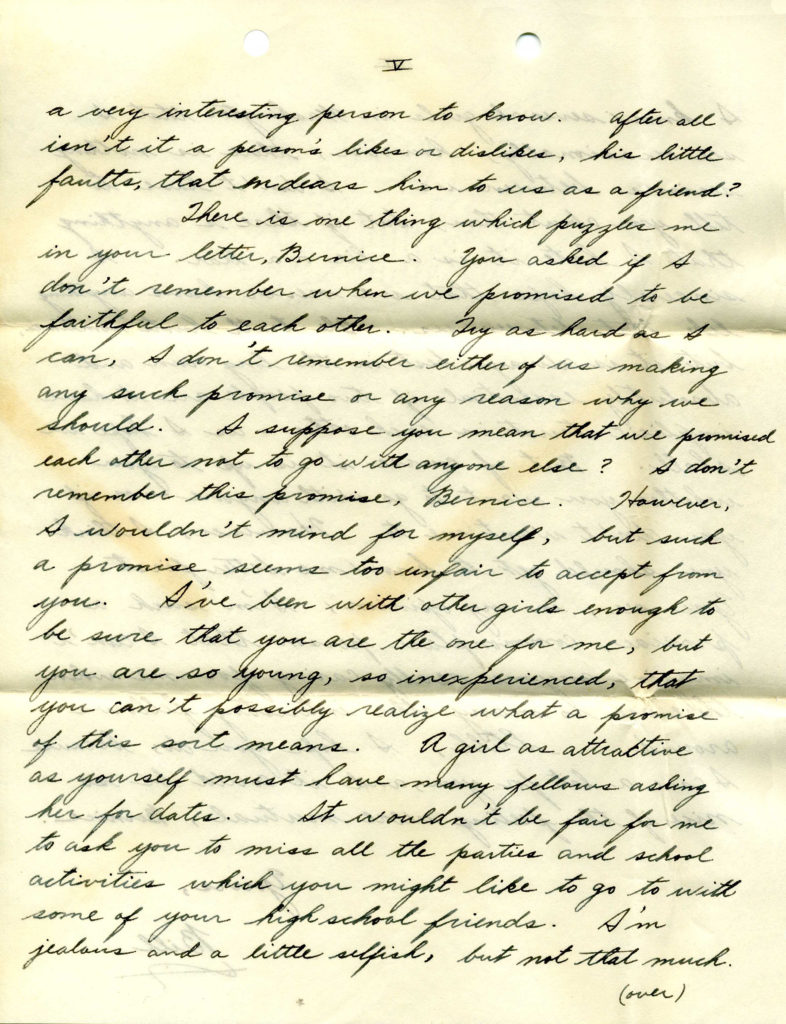 V
a very interesting person to know. After all
isn't it a person's likes or dislikes, his little
faults, that endears him to us as a friend?
There is one thing which puzzles me
in your letter, Bernice. You asked if I
don't remember when we promised to be
faithful to each other. Try as hard as I
can, I don't remember either of us making
any such promise or any reason why we
should. I suppose you mean that we promised
each other not to go with anyone else? I don't
remember this promise, Bernice. However,
I wouldn't mind for myself, but such
a promise seems too unfair to accept from
you. I've been with other girls enough to
be sure that you are the one for me, but
you are so young, so inexperienced, that
you can't possibly realize what a promise
of this sort means. A girl as attractive
as yourself must have many fellows asking
her for dates. It wouldn't be fair for me
to ask you to miss all the parties and school
activities which you might like to go to with
some of your high school friends. I'm
jealous and a little selfish, but not that much.
(over)